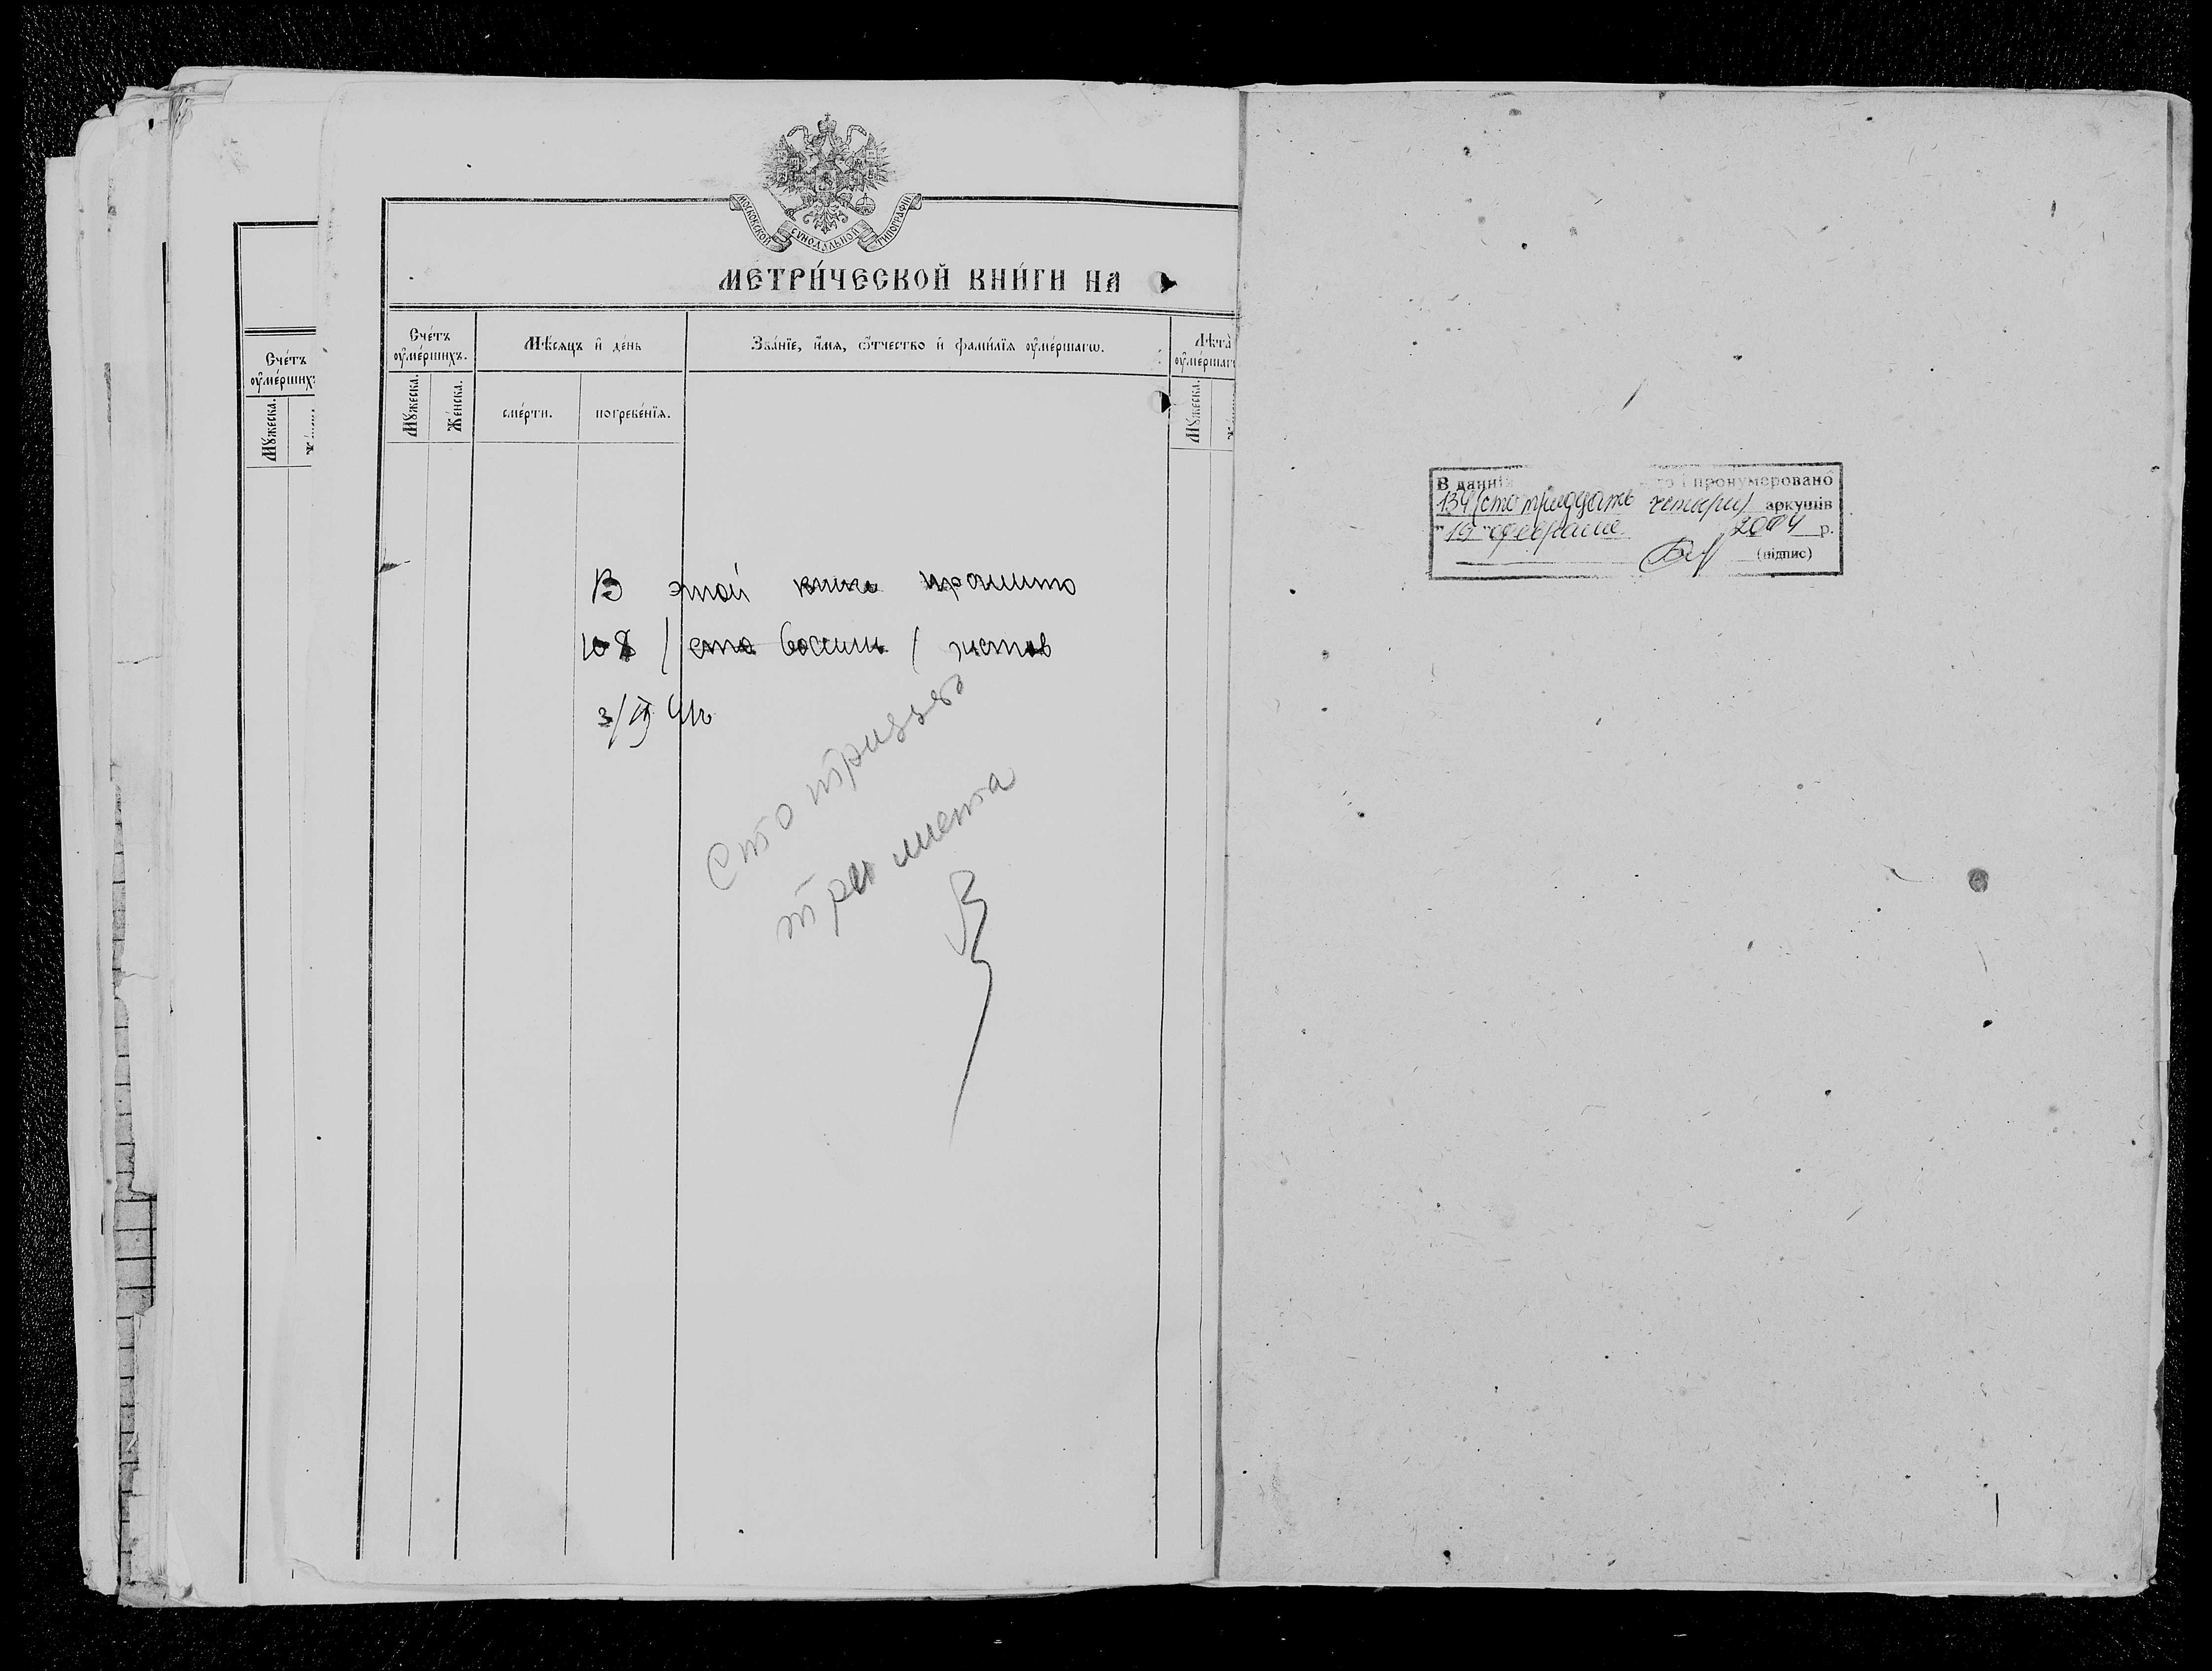 МОСКОВСКОЙ СѴНОДАЛЬНОЙ ТИПОГРАФІИ
МЕТРИ́ЧЕСКОЙ КНИ́ГИ НА
Сче́тъ
оу҆ме́ршихъ.
Мѣ́сяцъ и҆ де́нь
Зва́нїе, и҆́мя, ѻ҆́тчество и҆ фами́лїя оу҆ме́ршагѡ.
Лѣта̀
оу҆ме́ршаг
Мꙋ́жеска.
Же́нска.
сме́рти.
погребе́нїя.
Мꙋ́жеска.
Сче́тъ
оу҆ме́рших
Мꙋ́жеска.
В этой книге прошито
108 / сто восемь / листов
Сто тридцать
три листа
В данні і пронумеровано
134 (сто тридцать четыри) аркушів
"19" февраля 2004 р.
(підпис)